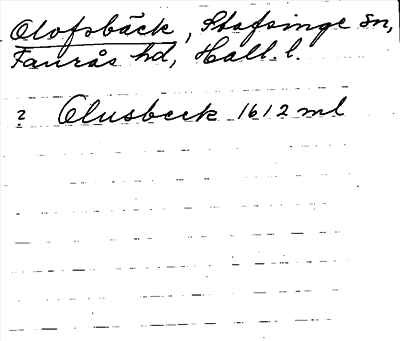 Olofsbäck, Stafsinge sn,
Faurås hd, Hall. l.
? Olusbeck 1612 ml